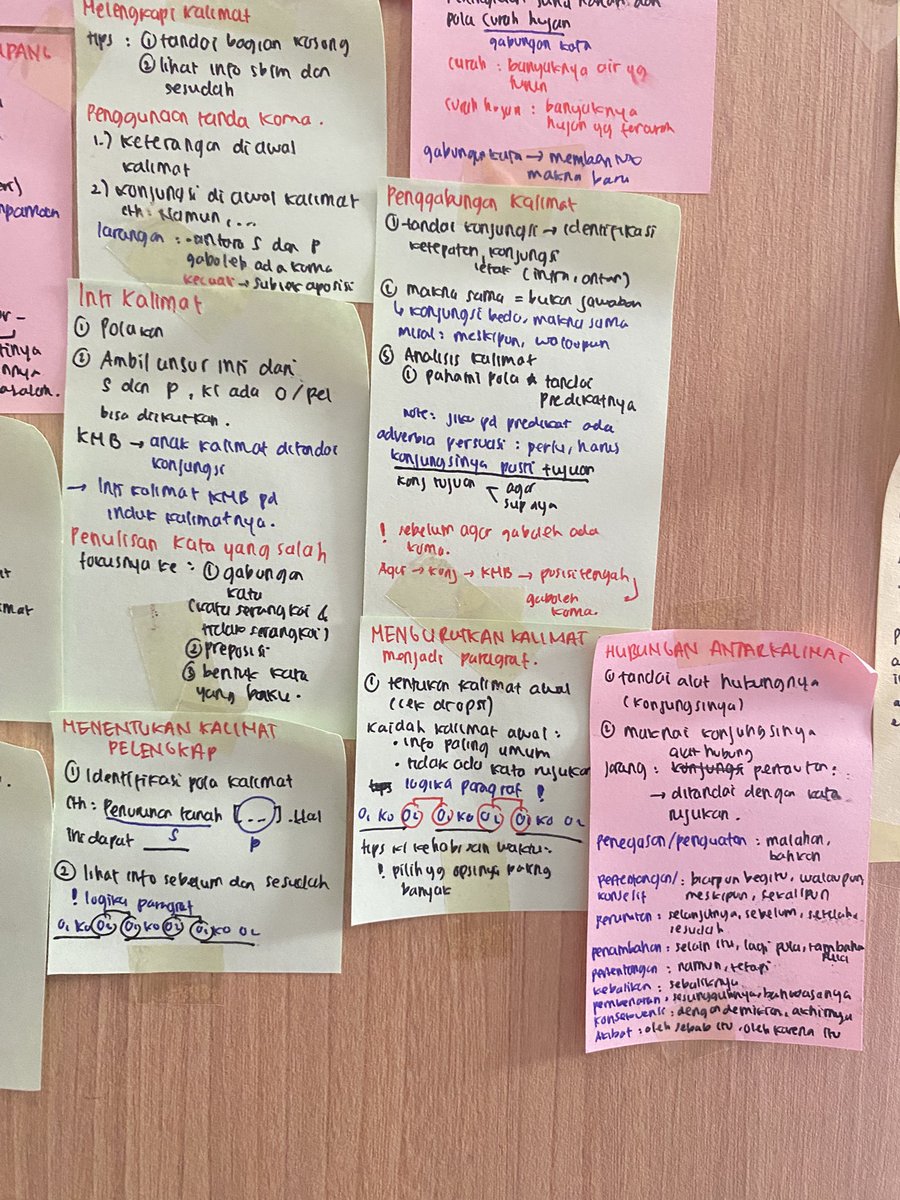 Melengkapi kalimat
tips : ① tandai bagian kosong
② lihat info sblm dan
sesudah
Penggunaan tanda koma.
1.) Keterangan di awal
kalimat
2) Konjungsi di awal kalimat
cth: Namun, ...
larangan : - antara S dan P
gaboleh ada koma
kecuali → subjek aposisi
pola curah hujan
gabungan kata
curah : banyaknya air yg
turun
curah hujan : banyaknya
hujan yg tercurah
gabungan kata →
makna baru
Inti Kalimat
① Polakan
② Ambil unsur inti dari
S dan P, kl ada O/pel
bisa diikutkan.
KMB → anak kalimat ditandai
konjungsi
→ Inti kalimat KMB pd
induk kalimatnya.
Penulisan kata yang salah
fokusnya ke : ① gabungan
kata
(kata serangkai &
tidak serangkai)
② preposisi
③ bentuk kata
yang baku.
Penggabungan kalimat
① tandai konjungsi → identifikasi
ketepatan konjungsi
letak (intra, antar)
② makna sama = bukan jawaban
↳ konjungsi beda, makna sama
misal : meskipun, walaupun
③ Analisis kalimat
① pahami pola & tandai
predikatnya
note: jika pd predikat ada
adverbia persuasi : perlu, harus
konjungsinya pasti tujuan
konj tujuan < agar
supaya
! sebelum agar gaboleh ada
koma.
Agar → konj → KMB → posisi tengah
gaboleh
koma.
MENENTUKAN KALIMAT
PELENGKAP
① Identifikasi pola kalimat
cth : Penurunan tanah [...]. Hal
ini dapat S P
② lihat info sebelum dan sesudah
! logika paragraf
O₁ KO O₂ O₁ KO O₂ O₁ KO O₂
MENGURUTKAN KALIMAT
menjadi paragraf.
① tentukan kalimat awal
(cek di opsi)
Kaidah kalimat awal :
• info paling umum
• tidak ada kata rujukan
tips logika paragraf !
O₁ KO O₂ O₁ KO O₂ O₁ KO O₂
tips kl kehabisan waktu :
! pilih yg opsinya paling
banyak
HUBUNGAN ANTARKALIMAT
① tandai alat hubungnya
(konjungsinya)
② maknai konjungsinya
alat hubung
jarang : konjungsi pertautan :
→ ditandai dengan kata
rujukan.
penegasan/penguatan : malahan,
bahkan
pertentangan/ : biarpun begitu, walaupun,
konsesif meskipun, sekalipun
perurutan : selanjutnya, sebelum, setelah,
sesudah
penambahan : selain itu, lagi pula, tambahan
pula
pertentangan : namun, tetapi
kebalikan : sebaliknya
pembenaran : sesungguhnya, bahwasanya
konsekuensi : dengan demikian, akhirnya
Akibat : oleh sebab itu, oleh karena itu